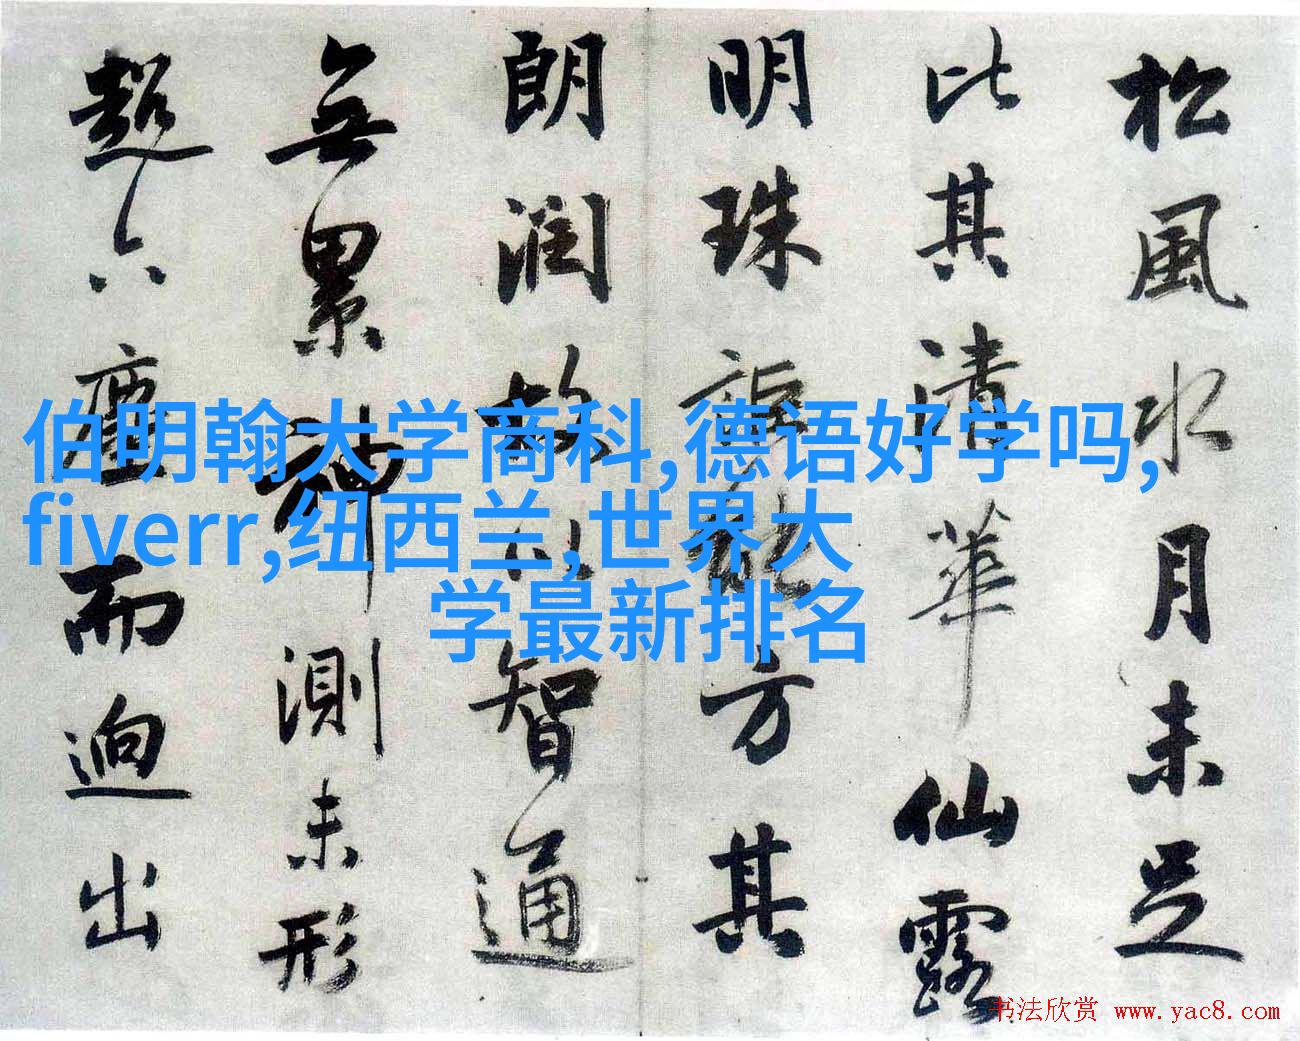 松風水月未足
比其清華仙露
明珠詎能方其
朗潤故以智通
無累神測未形
超六塵而迥出
伯明翰大学商科,德语好学吗,
fiverr,纽西兰,世界大
学最新排名
书法欣赏 www.yac8.com